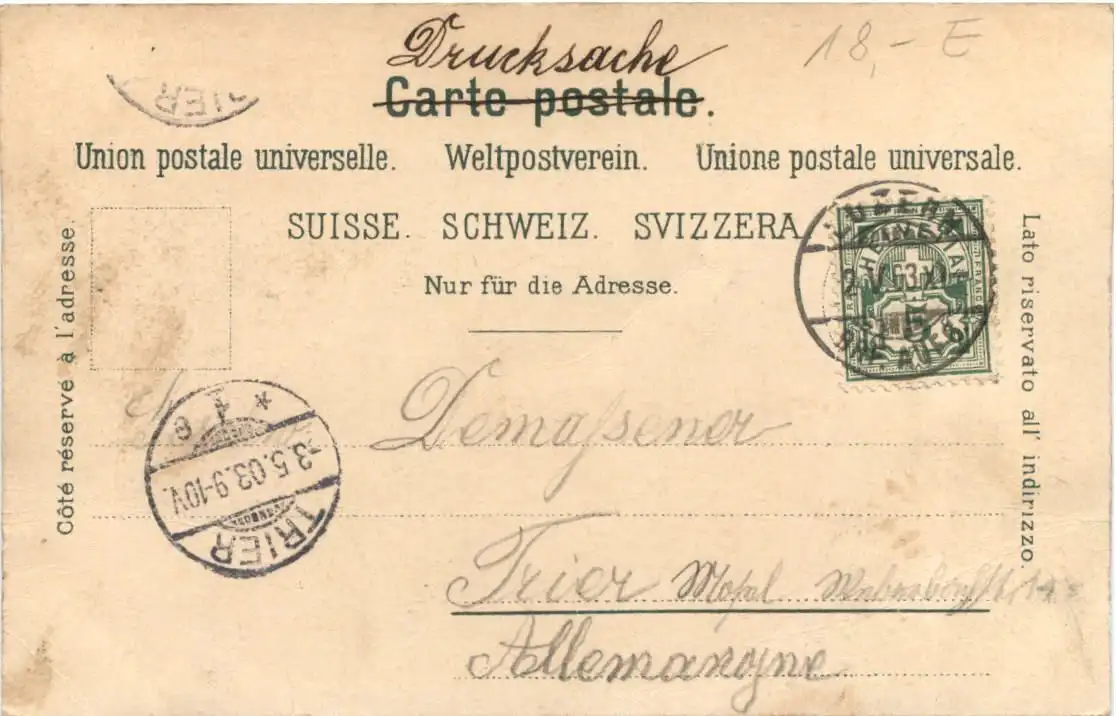 18,- E
Drucksache
Carte postale.
Union postale universelle. Weltpostverein. Unione postale universale.
SUISSE. SCHWEIZ. SVIZZERA.
Nur für die Adresse.
Côté réservé à l'adresse.
Lato riservato all' indirizzo.
LUZERN
5
TRIER
3.5.03.9-10V.
TRIER
Trier Mosel
Allemangne